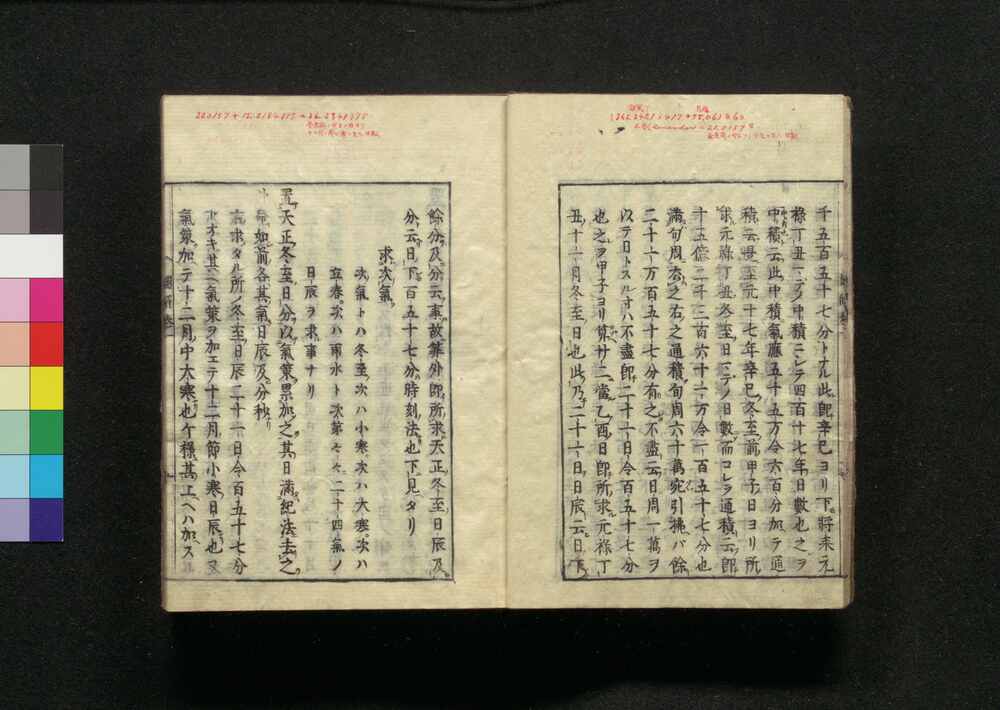 千五百五十七分トナル此即辛巳ヨリ下將來元
祿丁丑マデノ中積ニシテ四百十七年日數也之ヲ
中積云此中積氣應五十五万令六百分加テ通
積云是至元十七年辛巳冬至前甲子日ヨリ所
求元祿丁丑冬至日マテノ日數而コレヲ通積云即
十五億二千三百六十二万令一百五十七分也
滿旬周去之右之通積旬周六十萬宛引拂バ餘
二十一万百五十七分有之不盡云日周一萬ヲ
以テ日トスル寸ハ不盡即二十一日令百五十七分
也之ヲ甲子ヨリ算廿二當乙酉日即所求元祿丁
丑十一月冬至日也此乃二十二日日辰云日下
餘分及分云事故筭外即所求天正冬至日辰及
分云日下百五十七分時刻法也下見タリ
求次氣
次氣トハ冬至次ハ小寒次ハ大寒次ハ
立春次ハ雨水ト次第々々二十四氣ノ
日辰ヲ求事ナリ
置天正冬至日分以氣策累加之其日滿紀法去之
外命如前各其氣日辰及分秒
右求タル所ノ冬至日辰二十一日令百五十七分
ヲオキ其ニ氣策ヲ加エテ十二月節小寒日辰也又
氣策加テ十二月中大寒也ケ樣其上ヘハ加ス